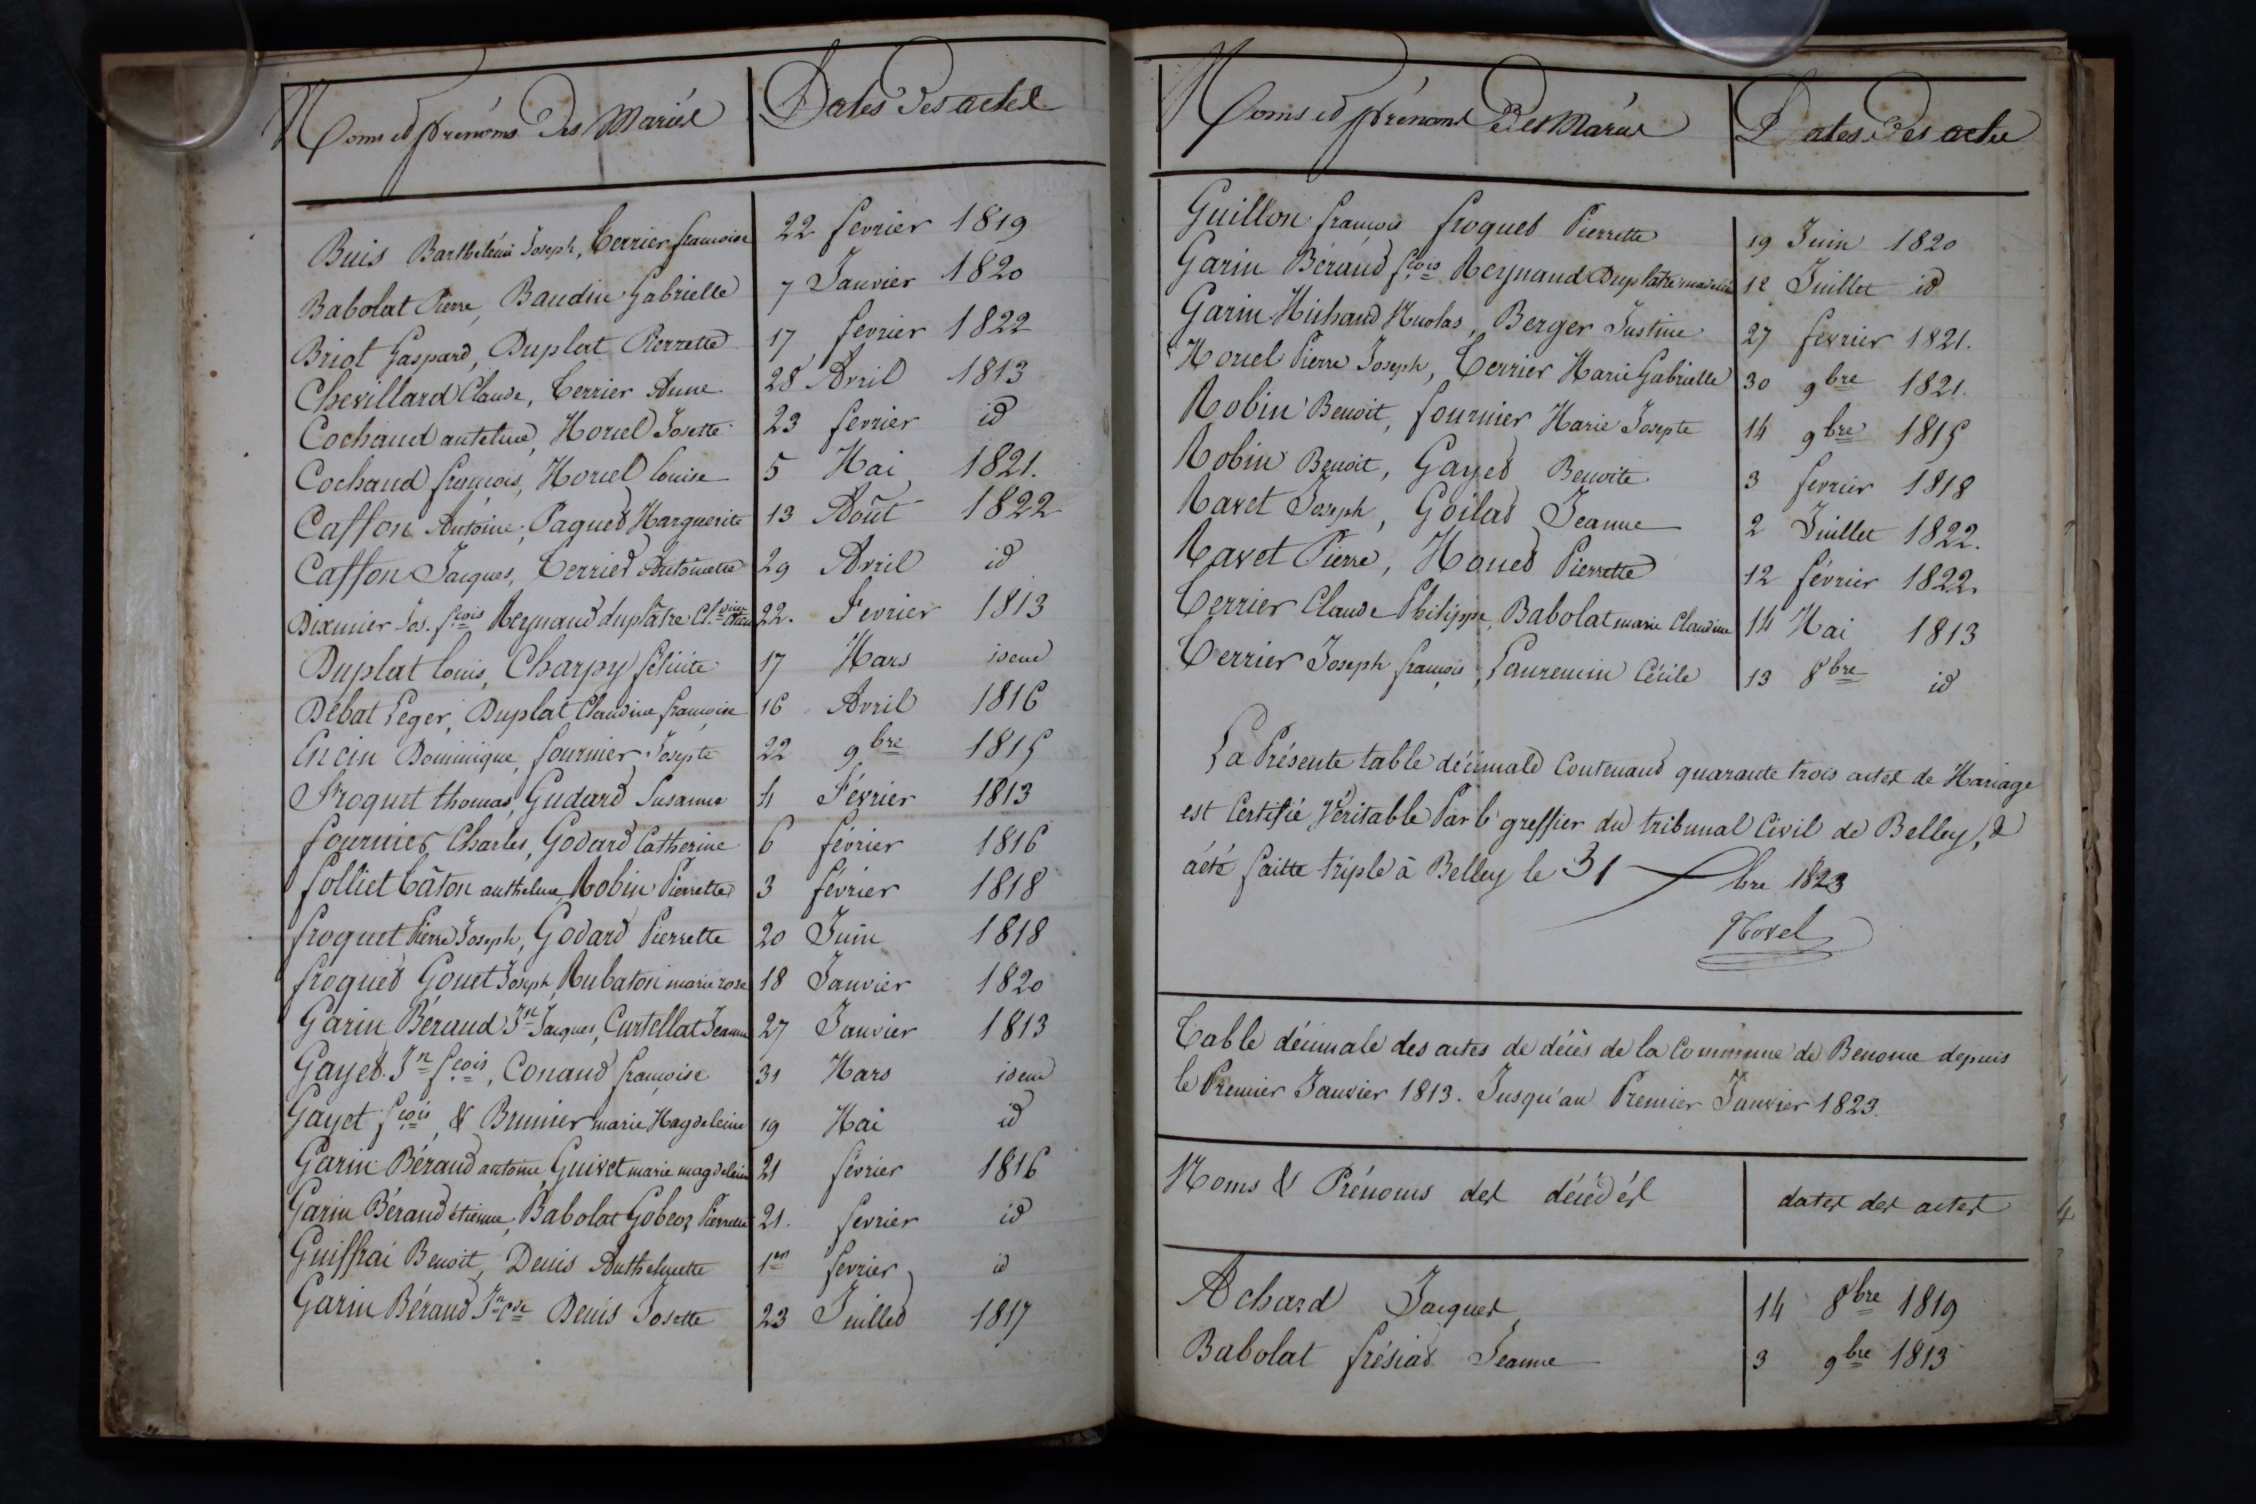 Noms et prénoms Des Mariés Dates Des actes
Buis Barthelémi Joseph, Terrier francoise 22 fevrier 1819
Babolat Pierre, Baudin Gabrielle 7 Janvier 1820
Briot Gaspard, Duplat Pierrette 17 fevrier 1822
Chevillard Claude, Terrier Anne 28 Avril 1813
Cochaud antelme, Moriel Josette 23 fevrier id
Cochaud francois, Moriel louise 5 Mai 1821.
Caffon Antoine, Paquet Marguerite 13 Août 1822
Caffon Jacques, Terrier Antoinette 29 Avril id
Dixmier Jos. fcois Reynaud duplâtre 22. Fevrier 1813
Duplat louis, Charpy félicité 17 Mars idem
Débat Leger, Duplat Claudine francoise 16 Avril 1816
Encin Dominique, fournier Josepte 22 9bre 1815
Froquet thomas, Gudard Susanne 4 Février 1813
fournier Charles, Godard Catherine 6 février 1816
folliet Câton anthelme, Robin Pierrette 3 février 1818
froquet Pierre Joseph, Godard Pierrette 20 Juin 1818
froquet Gouet Joseph, Rubaton marie rose 18 Janvier 1820
Garin Béraud Jn Jacques, Curtellat Jeanne 27 Janvier 1813
Gayet Jn fcois, Conand françoise 31 Mars idem
Gayet fcois, & Brunier marie Magdeleine 19 Mai id
Garin Béraud antoine, Guivet marie magdeleine 21 février 1816
Garin Béraud étienne, Babolat Gobeoz Pierrette 21. fevrier id
Guiffrai Benoit, Denis Anthelmette 1er fevrier id
Garin Béraud Jn Denis Josette 23 Juillet 1817
Noms et prénoms Des Mariés Dates Des actes
Guillon françois froquet Pierrette 19 Juin 1820
Garin Béraud fcois Reynaud Duplâtre 12 Juillet id
Garin Michaud Nicolas, Berger Justine 27 fevrier 1821.
Moriel Pierre Joseph, Terrier Marie Gabrielle 30 9bre 1821.
Robin Benoit, fournier Marie Josepte 14 9bre 1815
Robin Benoit, Gayet Benoite 3 fevrier 1818
Ravet Joseph, Goilat Jeanne 2 Juillet 1822.
Ravet Pierre, Monet Pierrette 12 février 1822.
Terrier Claude Philippe, Babolat marie Claudine 14 Mai 1813
Terrier Joseph françois, Laurencin Cécile 13 8bre id
La Présente table décimale Contenant quarante trois actes de Mariage
est Certifié Véritable Par le greffier du tribunal Civil de Belley, &
a été faitte triple à Belley le 31 bre 1823
Morel
Table décimale des actes de décès de la Commune de Benonce depuis
le Premier Janvier 1813. Jusqu'au Premier Janvier 1823.
Noms & Prénoms des décédés dates des actes
Achard Jacques 14 8bre 1819
Babolat frésiat Jeanne 3 9bre 1813